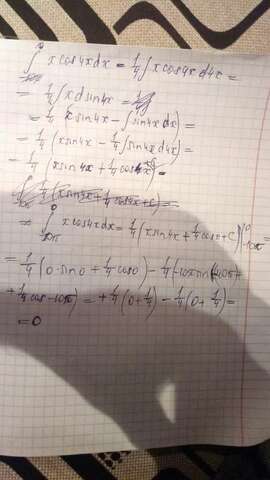 ∫ x cos4x dx = 1/4 ∫ x cos4x d4x =
= 1/4 ∫ x d sin4x =
= 1/4 (x sin4x - ∫ sin4x dx) =
= 1/4 (x sin4x - 1/4 ∫ sin4x d4x) =
= 1/4 (x sin4x + 1/4 cos4x) =
1/4 (x sin4x + 1/4 cos4x + C) =
= ∫ x cos4x dx = 1/4 (x sin4x + 1/4 cos + C) |
= 1/4 (0·sin0 + 1/4 cos0) - 1/4 (-10π sin(-40π +
+ 1/4 cos -10π) = + 1/4 (0 + 1/4) - 1/4 (0 + 1/4) =
= 0